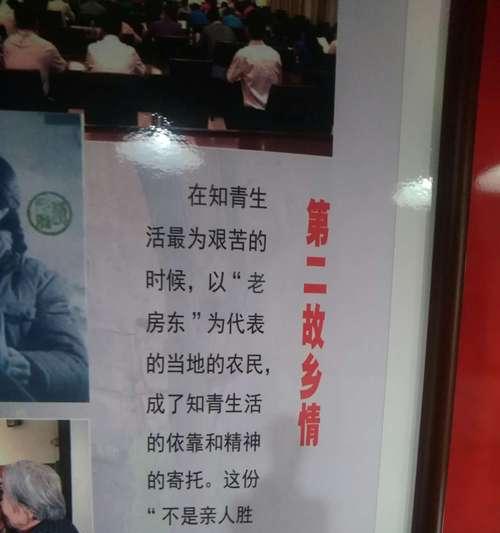 第二故乡情
在知青生
活最为艰苦的
时候，以“老
房东”为代表
的当地的农民，
成了知青生活
的依靠和精神
的寄托。这份
“不是亲人胜